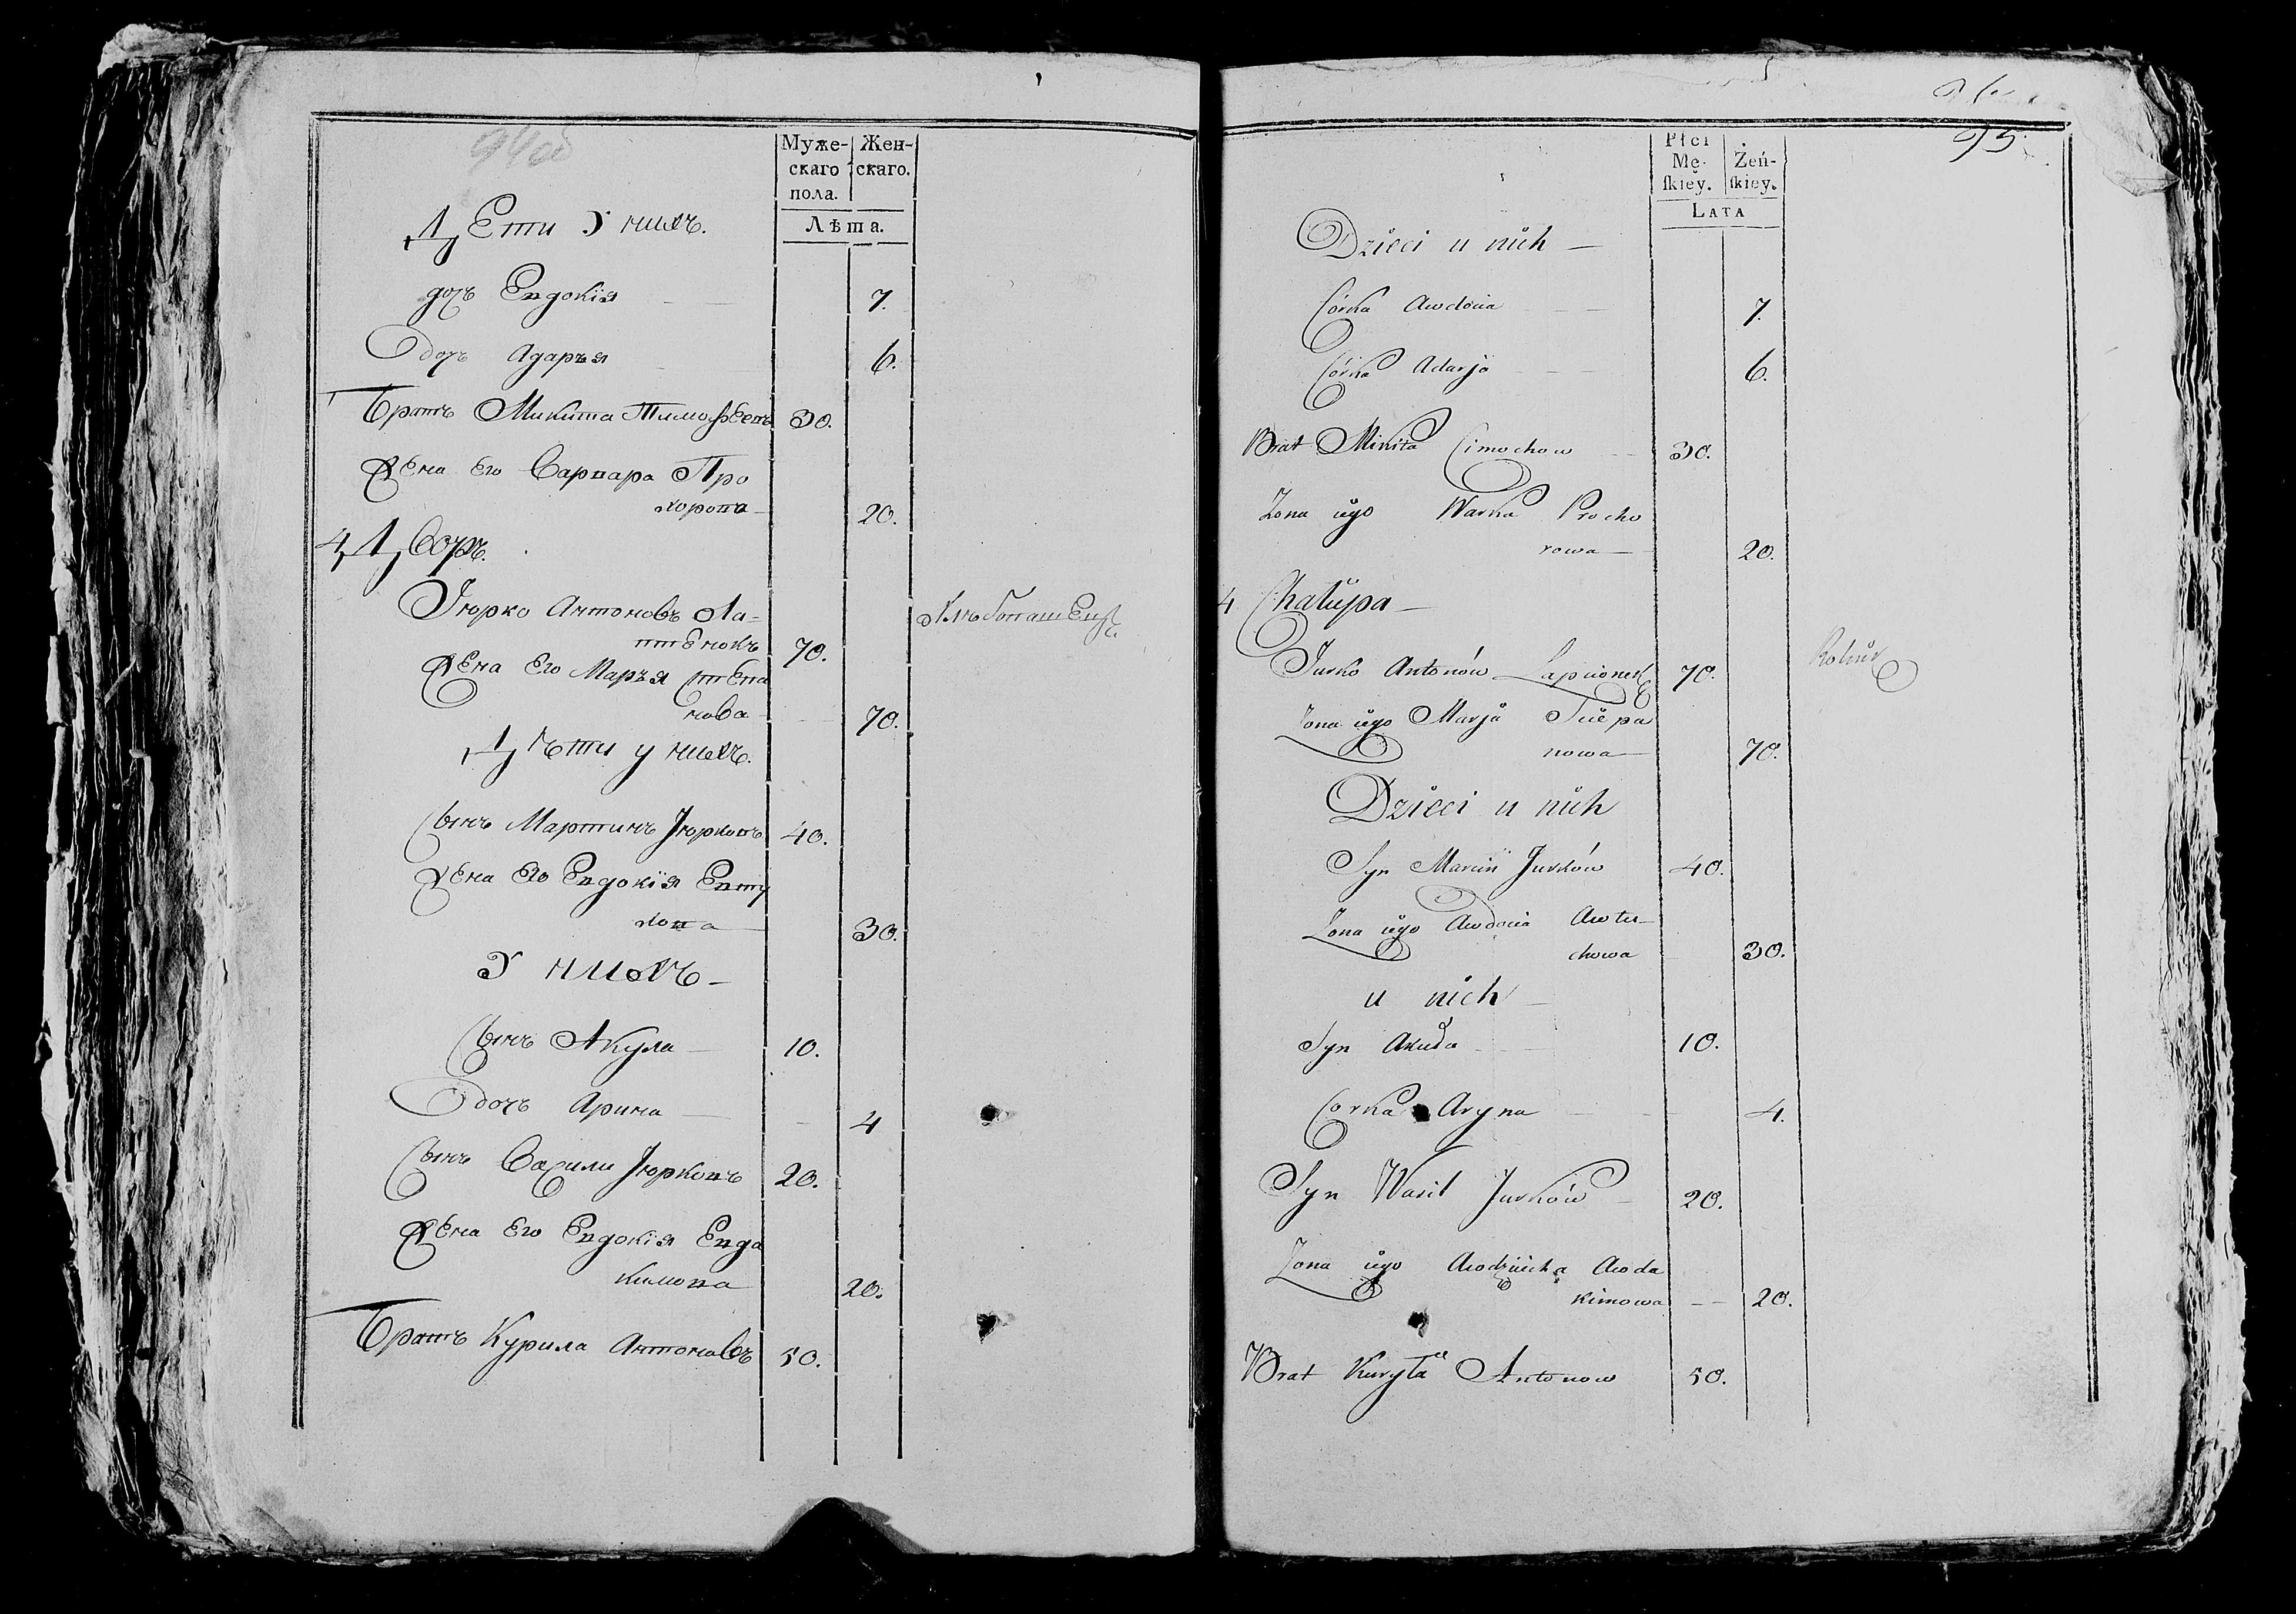 94об
Муже- Жен-
скаго скаго.
пола.
Лѣта.
ДЕти У нихъ.
дочь Евдокія 7.
дочь Адарья 6.
Братъ Микита Тимофеевъ 30.
жена Его Варвара Про
хорова 20.
4 Дворъ.
Июрко Антоновъ Ла=
птенокъ 70.
жена Его Марья Степа
нова 70.
Дѣти у нихъ.
Сынъ Мартинъ Июрковъ 40.
жена Его Евдокія Евту
хова 30.
У нихъ
Сынъ Акула 10.
дочь Арина 4
Сынъ Васили Июрковъ 20.
жена Его Евдокія Евда
кимова 20.
Братъ Курила Антоновъ 50.
95
Płci
Mę- Żeń-
ſkiey. ſkiey.
LATA
Dzieci u nich
Córka Awdocia 7.
Córka Adarja 6.
Brat Mikita Cimochow 30.
Zona iego Warka Procho
rowa 20.
4 Chałupa
Jurko Antonów Łapcionek 70.
Rolnik
Zona iego Marja Sciepa
nowa 70.
Dzieci u nich
Syn Marcin Jurków 40.
Zona iego Awdocia Awtu-
chowa 30.
u nich
Syn Akuła 10.
Corka Aryna 4.
Syn Wasil Jurków 20.
Zona iego Awdziucha Awda
kimowa 20.
Brat Kuryła Antonow 50.